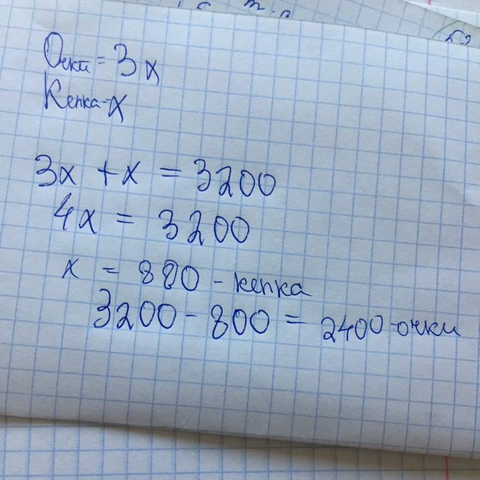 Очки = 3x
Кепка - x
3x + x = 3200
4x = 3200
x = 880 - кепка
3200 - 800 = 2400 - очки